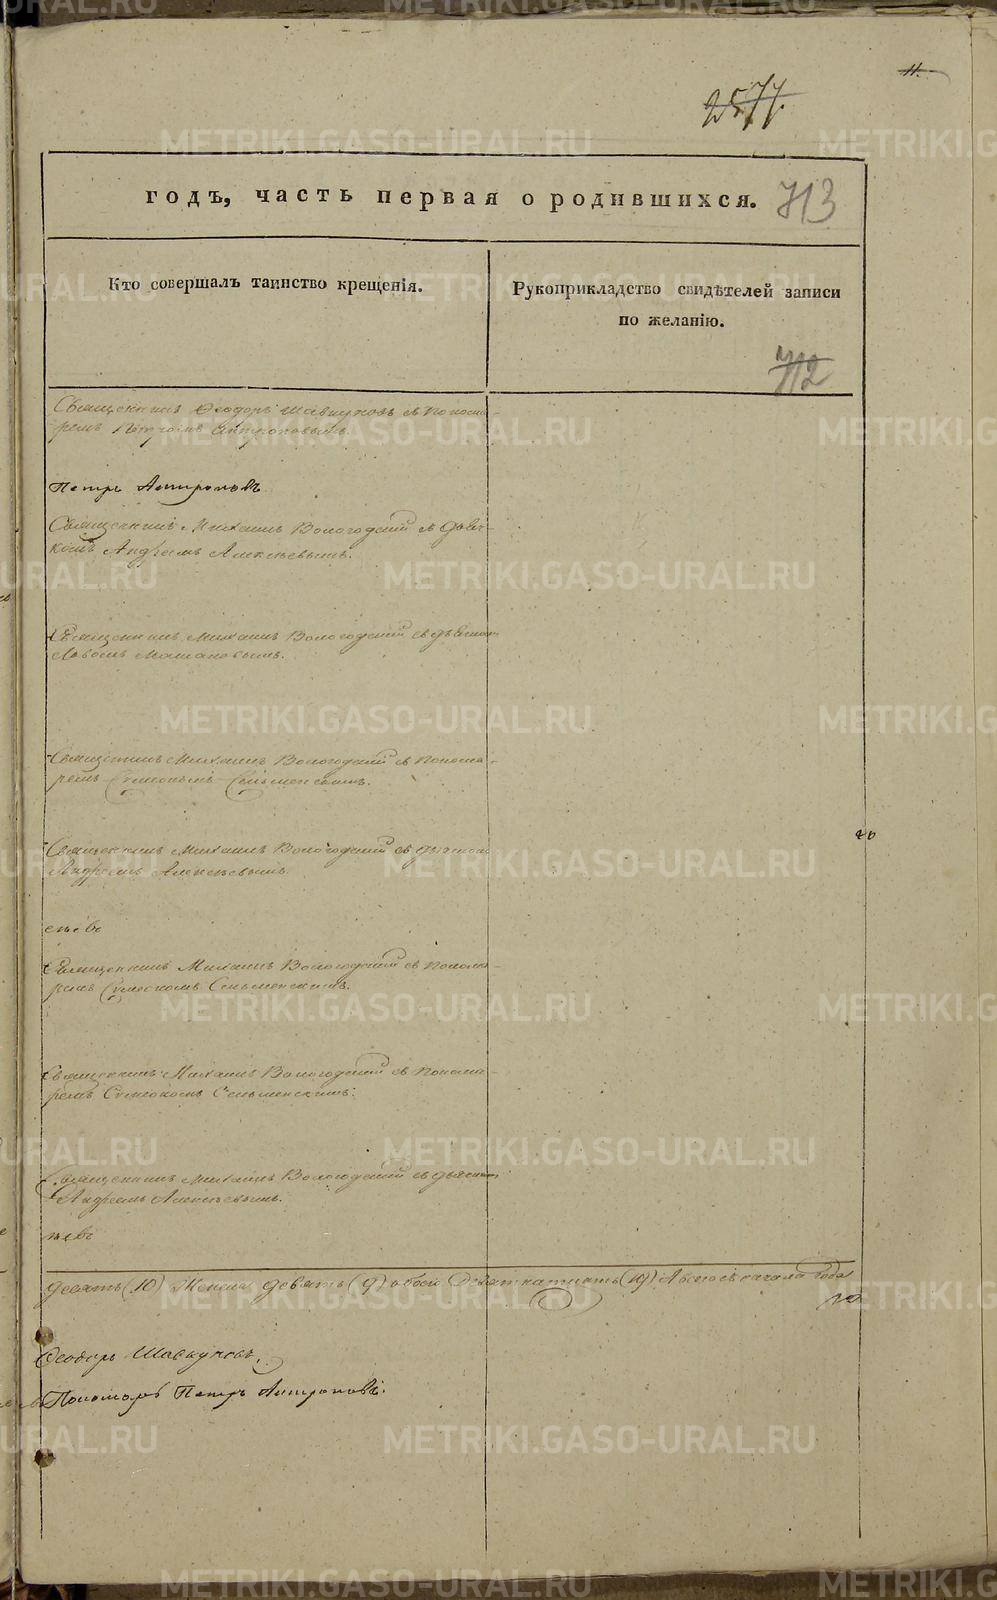 11.
2577.
годъ, часть первая о родившихся. 713
Кто совершалъ таинство крещенія.
Рукоприкладство свидѣтелей записи
по желанію.
712
Священникъ Ѳеодоръ Шавкуновъ съ Понома-
ремъ Петромъ Антроповымъ.
Петръ Антроповъ
Священникъ Михаилъ Вологодскій съ Дьяч-
комъ Андреемъ Алексѣевымъ.
Священникъ Михаилъ Вологодскій съ дьячком
Священникъ Михаилъ Вологодскій съ Понома-
ремъ Сумеономъ
Священникъ Михаилъ Вологодскій съ дьячкомъ
Андреемъ Алексѣевымъ.
Священникъ Михаилъ Вологодскій съ Понома-
ремъ Сумеономъ
Священникъ Михаилъ Вологодскій съ Понома-
ремъ Сумеономъ
Священникъ Михаилъ Вологодскій съ дьячкомъ
Андреемъ Алексѣевымъ.
десять (10) Женска девять (9) обоего Девятнатцать (19) А всего съ начала года
Ѳеодоръ Шавкуновъ.
Пономарь Петръ Антроповъ.
METRIKI.GASO-URAL.RU